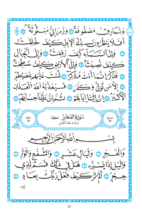 وَنَمَارِقُ مَصْفُوفَةٌ ۝ وَزَرَابِيُّ مَبْثُوثَةٌ ۝
أَفَلَا يَنظُرُونَ إِلَى الْإِبِلِ كَيْفَ خُلِقَتْ ۝
وَإِلَى السَّمَاءِ كَيْفَ رُفِعَتْ ۝ وَإِلَى الْجِبَالِ
كَيْفَ نُصِبَتْ ۝ وَإِلَى الْأَرْضِ كَيْفَ سُطِحَتْ ۝
فَذَكِّرْ إِنَّمَا أَنتَ مُذَكِّرٌ ۝ لَّسْتَ عَلَيْهِم بِمُصَيْطِرٍ ۝
إِلَّا مَن تَوَلَّىٰ وَكَفَرَ ۝ فَيُعَذِّبُهُ اللَّهُ الْعَذَابَ
الْأَكْبَرَ ۝ إِنَّ إِلَيْنَا إِيَابَهُمْ ۝ ثُمَّ إِنَّ عَلَيْنَا حِسَابَهُم ۝
بِسْمِ اللَّهِ الرَّحْمَٰنِ الرَّحِيمِ
وَالْفَجْرِ ۝ وَلَيَالٍ عَشْرٍ ۝ وَالشَّفْعِ وَالْوَتْرِ ۝
وَاللَّيْلِ إِذَا يَسْرِ ۝ هَلْ فِي ذَٰلِكَ قَسَمٌ لِّذِي
حِجْرٍ ۝ أَلَمْ تَرَ كَيْفَ فَعَلَ رَبُّكَ بِعَادٍ ۝